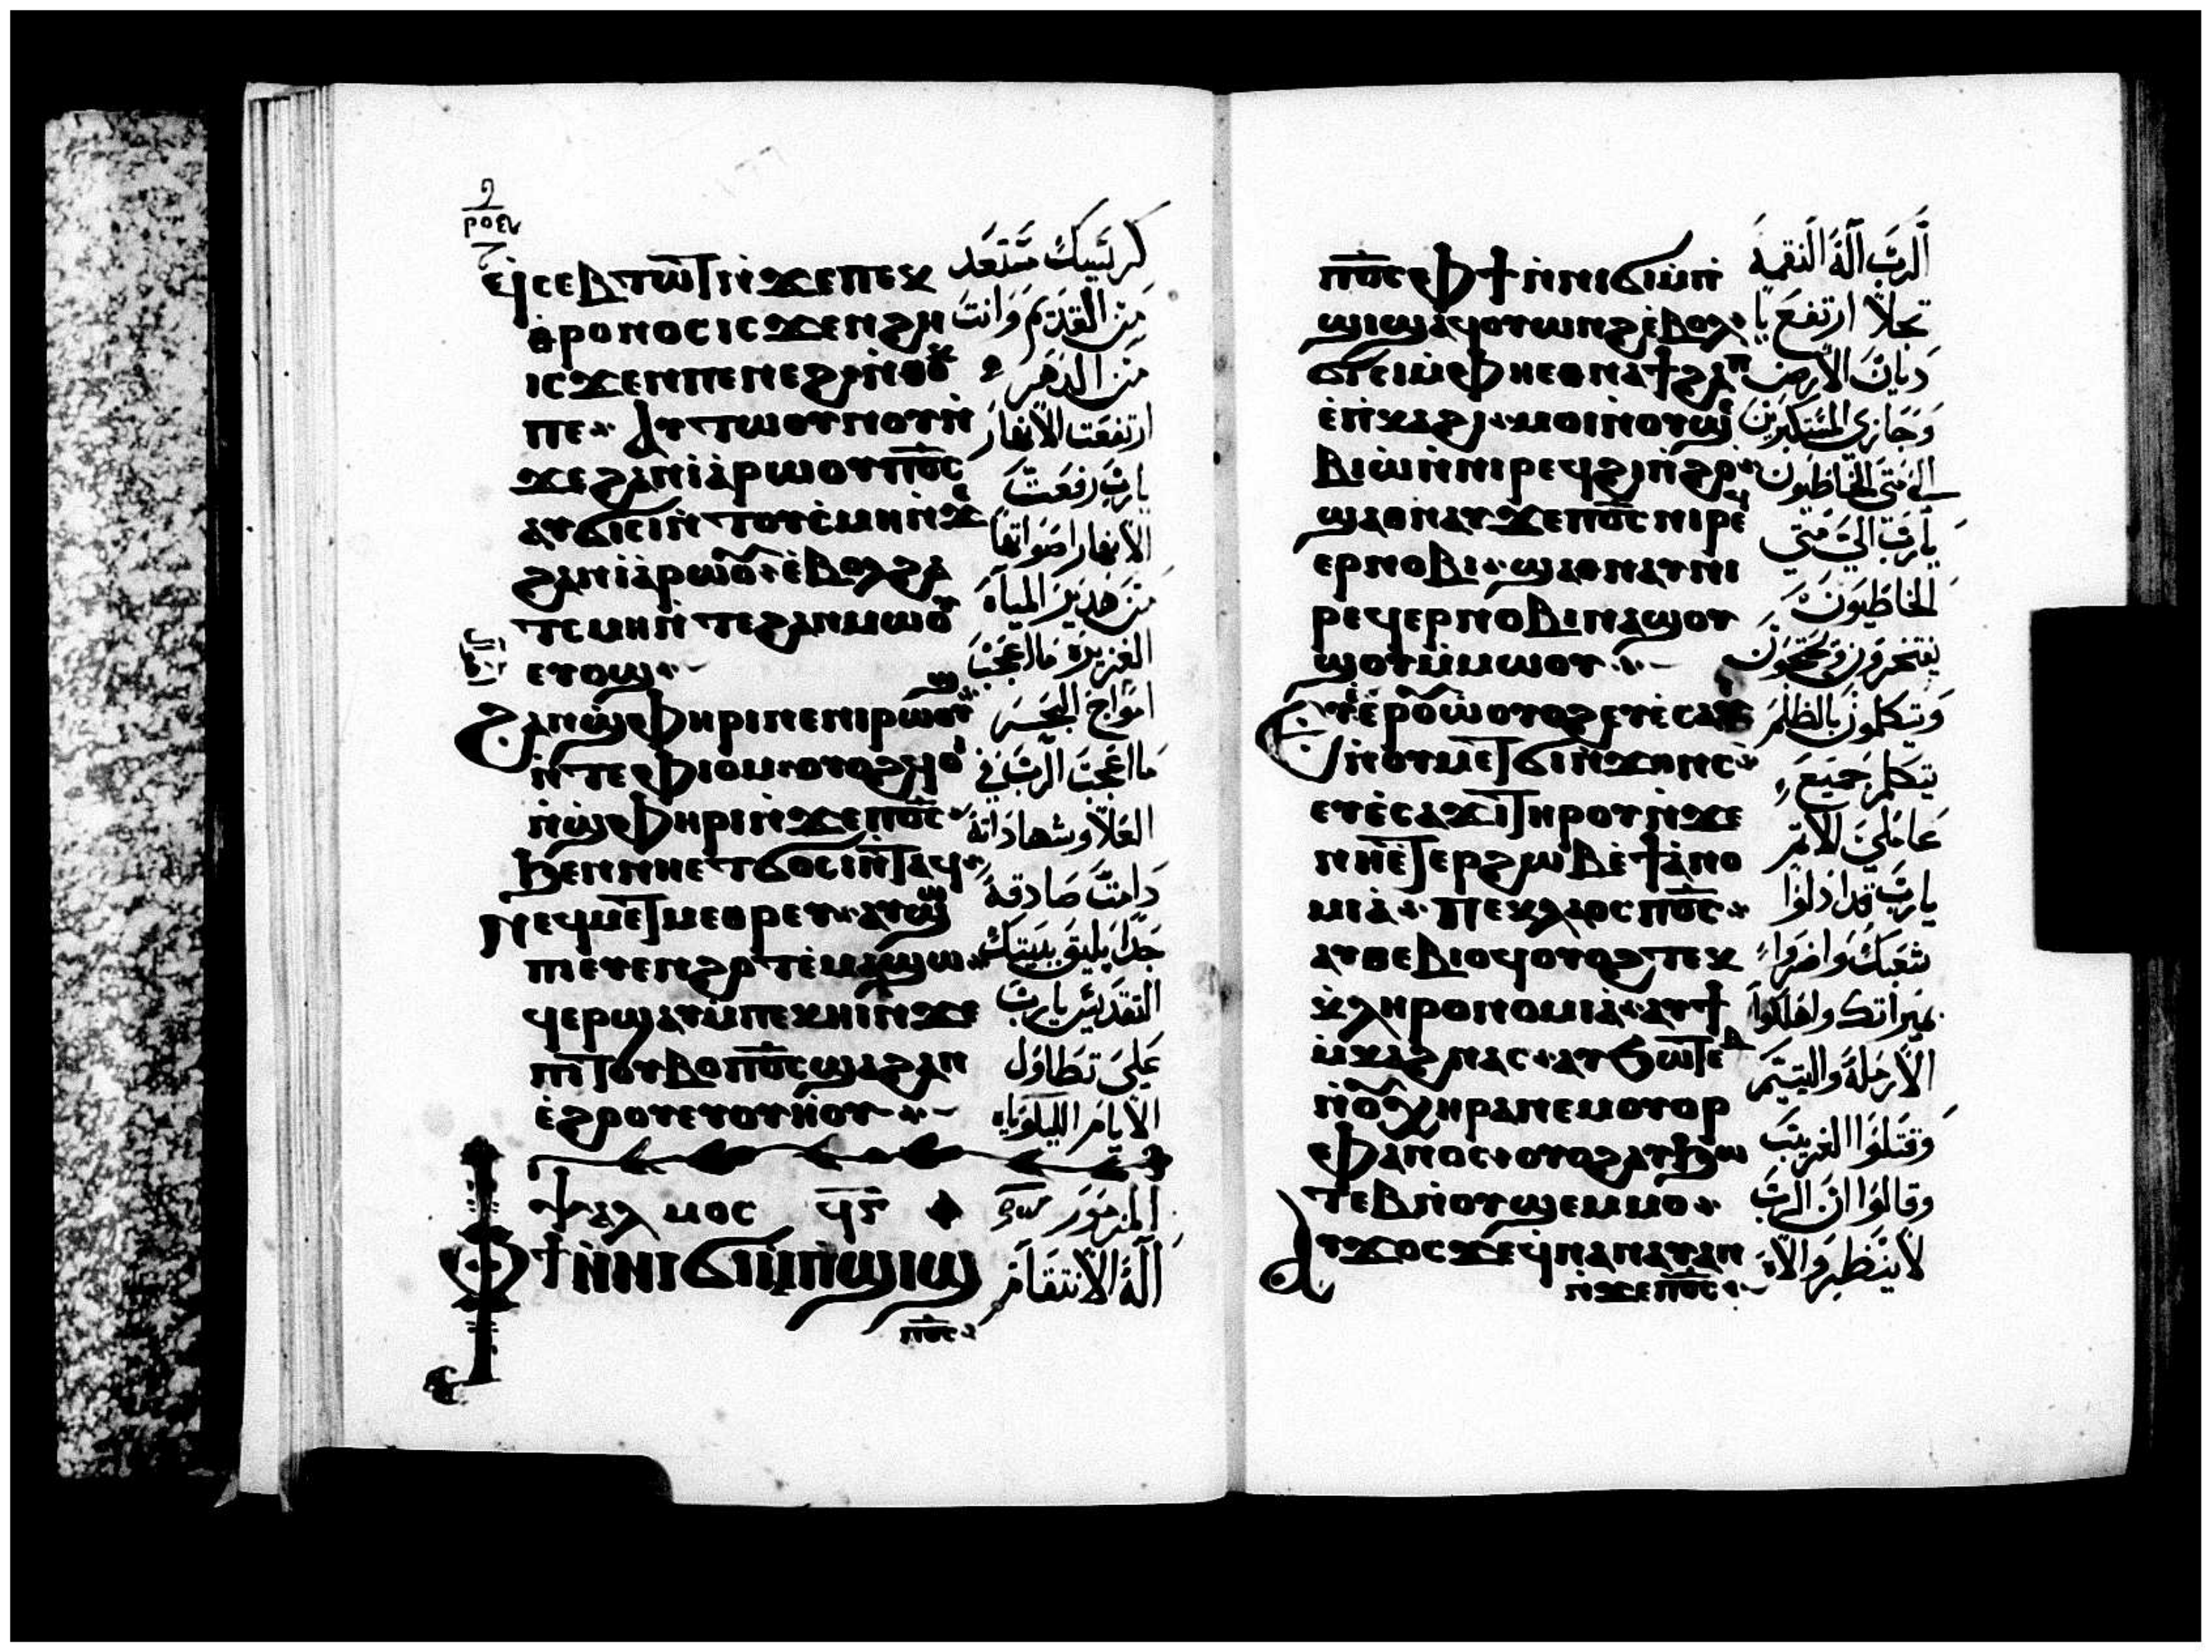 ϥⲥⲉⲃⲧⲱⲧ ⲛ̀ϫⲉⲡⲉⲕ
ⲑ̀ⲣⲟⲛⲟⲥ ⲓⲥϫⲉⲛ ϩⲏ
ⲓⲥϫⲉⲛ ⲡⲉⲛⲉϩ ⲛ̀ⲑⲟⲕ
ⲡⲉ ⁘ ⲁⲩⲧⲱⲟⲩⲛⲟⲩ ⲛ̀
ϫⲉϩⲁⲛⲓⲁⲣⲱⲟⲩ ⲡ⳪
ⲁⲩϭⲓⲥⲓ ⲛ̀ⲧⲟⲩⲥ̀ⲙⲏ ⲛ̀ϫⲉ
ϩⲁⲛⲓⲁⲣⲱⲟⲩ ⁘ ⲉ̀ⲃⲟⲗ ϩⲁ
ⲧⲥⲙⲏ ⲛ̀ⲧⲉϩⲁⲛⲙⲱⲟⲩ
ⲉⲧⲟϣ ⁘
ϩⲁⲛϣ̀ⲫⲏⲣⲓ ⲛⲉ ⲛⲓⲣⲱⲟⲩϣ
ⲛ̀ⲧⲉⲫⲓⲟⲙ ⲟⲩⲟϩ ϥⲟⲓ
ⲛ̀ϣ̀ⲫⲏⲣⲓ ⲛ̀ϫⲉⲡ⳪
ϧⲉⲛ ⲛⲏⲉⲧϭⲟⲥⲓ ⲛ̀ⲧⲁϥ ⁘
ⲛⲉϥⲙⲉⲧⲙⲉⲑⲣⲉⲩ ⁘ ⲁⲩϣ
ⲡⲓⲉⲧⲉⲛϩⲟⲧ ⲉ̀ⲙⲁϣⲱ ⁘
ϥⲉⲣϣⲁⲩ ⲙ̀ⲡⲉⲕⲏⲓ ⲛ̀ϫⲉ
ⲡⲓⲧⲟⲩⲃⲟ ⲡ⳪ ϣⲁ ϩⲁⲛ
ⲉ̀ϩⲟⲟⲩ ⲉⲧⲟⲩⲏⲟⲩ ⁘
ⲯⲁⲗⲙⲟⲥ ϥⲅ
ⲫϯ ⲛ̀ⲛⲓϭⲓⲙ̀ⲡϣⲓϣ
ⲡ⳪
كرسيك مستعد
من القديم وانت
من الدهر
ارتفعت الانهار
يارب رفعت
الانهار اصواتها
من هدير المياه
الغزيرة ما اعجب
امواج البحر
ما اعجب الرب في
العلا وشهاداته
دامت صادقة
جدا يليق ببيتك
التقديس يارب
على تطاول
الايام الليلوياه
المزمور
اله الانتقام
ⲡ⳪ ⲫϯ ⲛ̀ⲛⲓϭⲓⲙ̀ⲡ̀
ϣⲓϣ ⲁϥⲟⲩⲱⲛϩ ⲉ̀ⲃⲟⲗ ⁘
ϭⲓⲥⲓ ⲫⲏⲉⲑⲛⲁϯϩⲁⲡ
ⲉ̀ⲡ̀ⲕⲁϩⲓ ⁘ ⲙⲟⲓ ⲛ̀ⲟⲩϣⲉ
ⲃⲓⲱ̀ ⲛ̀ⲛⲓⲣⲉϥϭⲓⲛ̀ϩⲟ ⁘
ϣⲁⲑⲛⲁⲩ ϫⲉ ⲡ⳪ ⲛⲓⲣⲉϥ
ⲉⲣⲛⲟⲃⲓ ⁘ ϣⲁⲑⲛⲁⲩ ⲛⲓ
ⲣⲉϥⲉⲣⲛⲟⲃⲓ ⲛⲁϣⲟⲩ
ϣⲟⲩ ⲙ̀ⲙⲱⲟⲩ ⁘
ⲉⲩⲉ̀ⲣⲟⲩⲱ̀ ⲟⲩⲟϩ ⲉⲩⲉ̀ⲥⲁϫⲓ
ⲛ̀ⲟⲩⲙⲉⲧϭⲓⲛ̀ϫⲟⲛⲥ ⁘
ⲉⲩⲉ̀ⲥⲁϫⲓ ⲧⲏⲣⲟⲩ ⲛ̀ϫⲉ
ⲛⲏⲉ̀ⲧⲉⲣϩⲱⲃ ⲉ̀ϯⲁ̀ⲛⲟ
ⲙⲓⲁ̀ ⁘ ⲡⲉⲕⲗⲁⲟⲥ ⲡ⳪ ⁘
ⲁⲩⲑⲉⲃⲓⲟϥ ⲟⲩⲟϩ ⲧⲉⲕ
ⲕ̀ⲗⲏⲣⲟⲛⲟⲙⲓⲁ̀ ⁘ ⲁⲩϯ
ⲙ̀ⲕⲁϩ ⲛⲁⲥ ⁘ ⲁⲩϧⲱⲧⲉⲃ
ⲛ̀ⲟⲩⲭⲏⲣⲁ ⲛⲉⲙ ⲟⲩⲟⲣ
ⲫⲁⲛⲟⲥ ⁘ ⲟⲩⲟϩ ⲁⲩϧⲱ
ⲧⲉⲃ ⲛ̀ⲟⲩϣⲉⲙⲙⲟ ⁘
ⲁⲩϫⲟⲥ ϫⲉ ϥ̀ⲛⲁⲛⲁⲩ ⲁⲛ
ⲛ̀ϫⲉⲡ⳪ ⁘
الرب اله النقمه
تجلا ارتفع يا
ديان الارض
وجازي المستكبرين
الى متى الخاطيون
يارب الى متى
الخاطيون
يفتخرون
ويتكلمون بالظلم
يتكلم جميع
عاملي الاثم
يارب قد اذلوا
شعبك واضروا
ميراثك واهلكوا
الارملة واليتيم
وقتلوا الغريب
وقالوا ان الرب
لا ينظر والاه